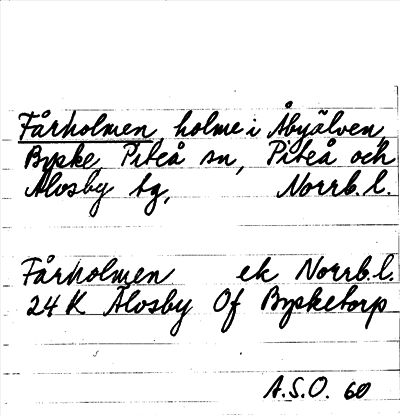 Fårholmen, holme i Åbyälven,
Byske, Piteå sn, Piteå och
Älvsby tg, Norrb.l.
Fårholmen ek Norrb.l.
24 K Älvsby Of Bysketorp
A.S.O. 60